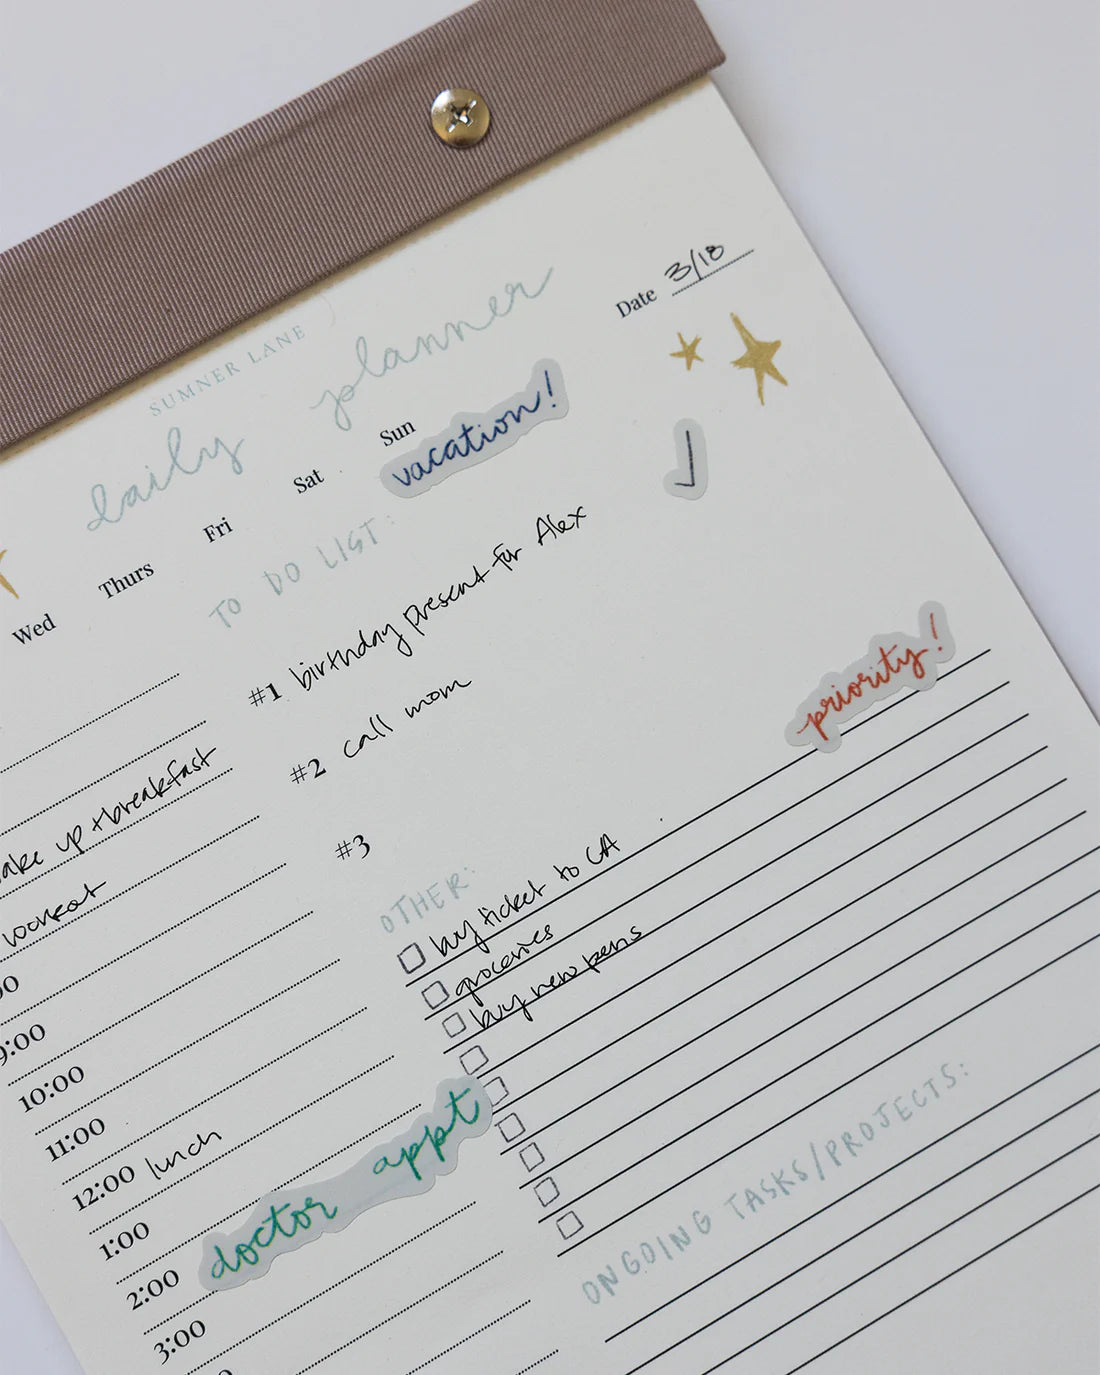 SUMNER LANE
daily planner
Date 3/18
Wed Thurs Fri Sat Sun
vacation!
TO DO LIST:
#1 birthday present for Alex
#2 call mom
#3
priority!
OTHER:
buy ticket to CA
groceries
buy new pens
ONGOING TASKS/PROJECTS:
ake up + breakfast
workout
00
9:00
10:00
11:00
12:00 lunch
1:00
2:00 doctor appt
3:00